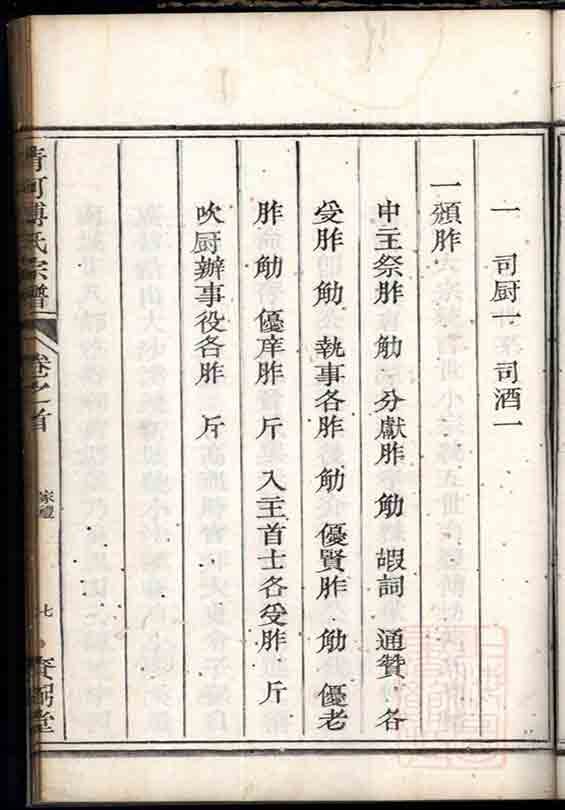 一 司厨一 司酒一
一頒胙
中主祭胙 觔 分獻胙 觔 嘏詞 通贊 各
受胙 觔 執事各胙 觔 優賢胙 觔 優老
胙 觔 優庠胙 斤 入主首士各受胙 斤
吹厨辦事役各胙 斤
清河傅氏宗譜 卷之首 家禮 七